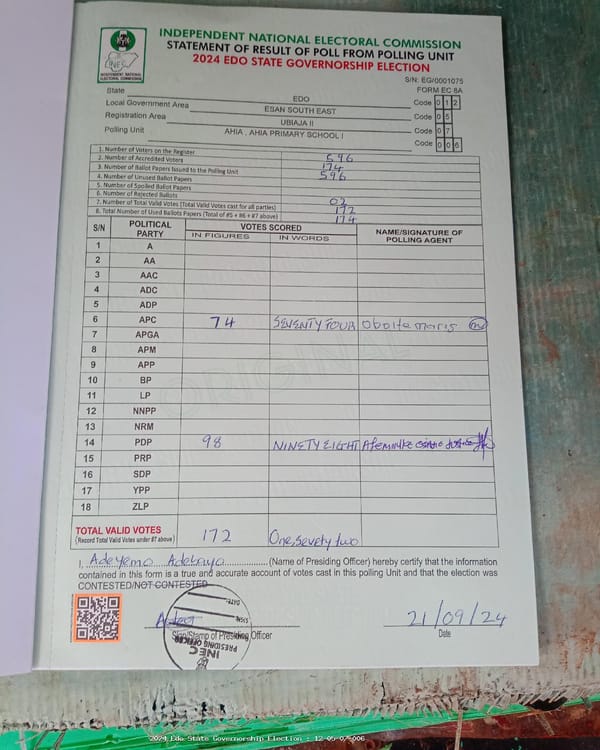 INDEPENDENT NATIONAL ELECTORAL COMMISSION
STATEMENT OF RESULT OF POLL FROM POLLING UNIT
2024 EDO STATE GOVERNORSHIP ELECTION
INEC
INDEPENDENT NATIONAL ELECTORAL COMMISSION
S/N: EG/0001075
FORM EC 8A
State EDO Code 0 1 2
Local Government Area ESAN SOUTH EAST Code 0 5
Registration Area UBIAJA II Code 0 7
Polling Unit AHIA , AHIA PRIMARY SCHOOL I Code 0 0 6
1. Number of Voters on the Register 596
2. Number of Accredited Voters 174
3. Number of Ballot Papers Issued to the Polling Unit 596
4. Number of Unused Ballot Papers
5. Number of Spoiled Ballot Papers
6. Number of Rejected Ballots 02
7. Number of Total Valid Votes (Total Valid Votes cast for all parties) 172
8. Total Number of Used Ballots Papers (Total of #5 + #6 + #7 above) 174
S/N POLITICAL PARTY VOTES SCORED NAME/SIGNATURE OF POLLING AGENT
IN FIGURES IN WORDS
1 A
2 AA
3 AAC
4 ADC
5 ADP
6 APC 74 SEVENTY FOUR
7 APGA
8 APM
9 APP
10 BP
11 LP
12 NNPP
13 NRM
14 PDP 98 NINETY EIGHT
15 PRP
16 SDP
17 YPP
18 ZLP
ORIGINAL
TOTAL VALID VOTES 172 One, Sevety two
(Record Total Valid Votes under #7 above)
I, Adeyemo Adebayo (Name of Presiding Officer) hereby certify that the information
contained in this form is a true and accurate account of votes cast in this polling Unit and that the election was
CONTESTED/NOT CONTESTED
21/09/24
Sign/Stamp of Presiding Officer Date
DATE
SIGN
PRESIDING OFFICER
INEC
2024 Edo State Governorship Election : 12-05-07-006